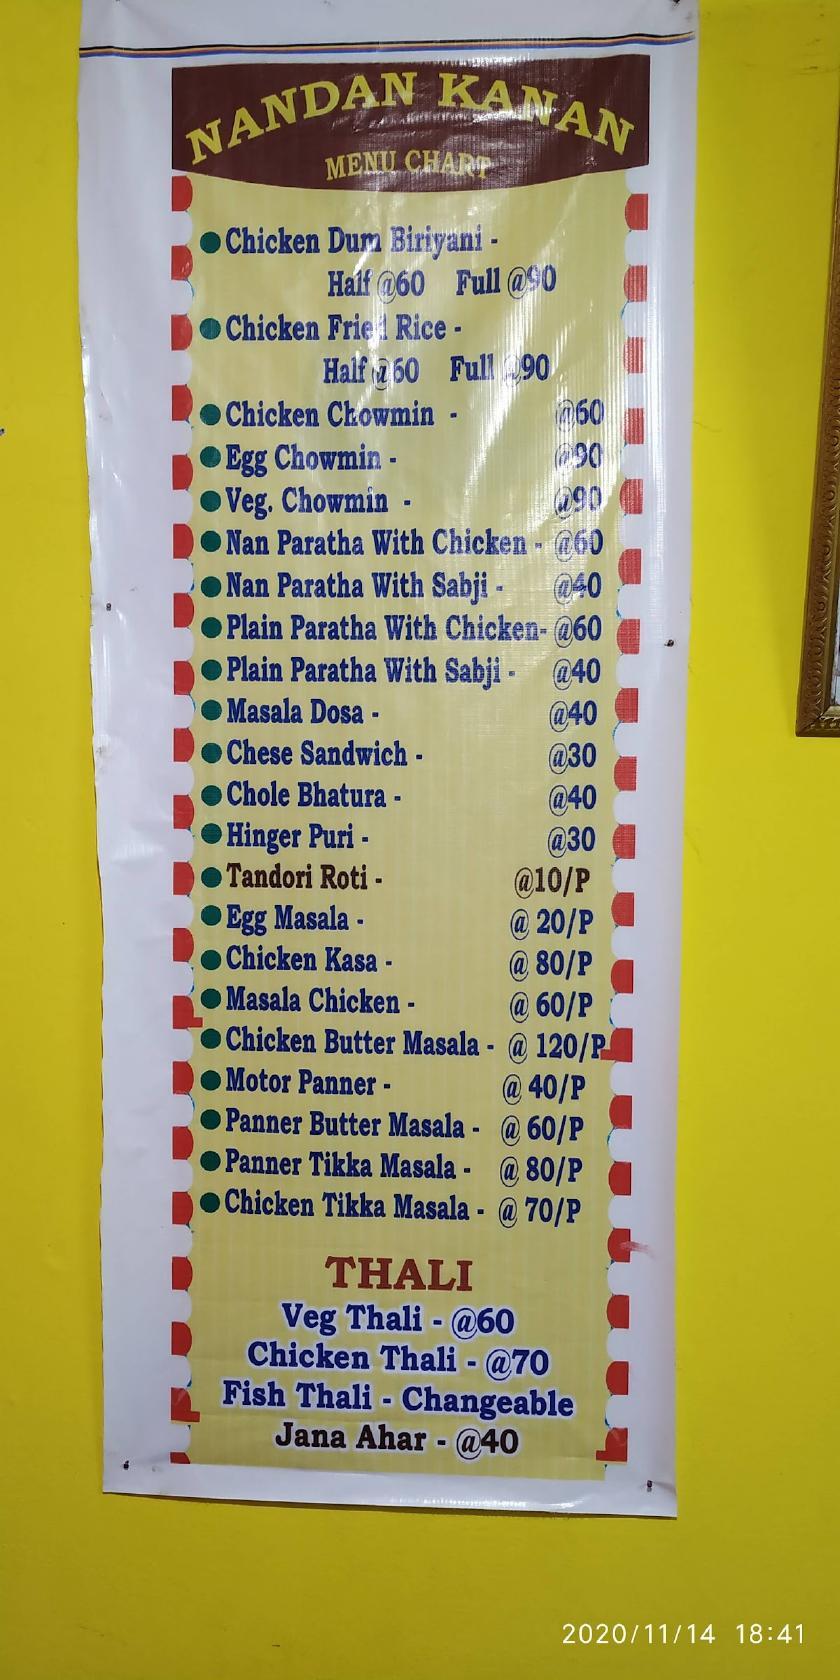 NANDAN KANAN
MENU CHART
Chicken Dum Biriyani -
Half @60 Full @90
Chicken Fried Rice -
Half @60 Full @90
Chicken Chowmin - @60
Egg Chowmin - @90
Veg. Chowmin - @90
Nan Paratha With Chicken - @60
Nan Paratha With Sabji - @40
Plain Paratha With Chicken- @60
Plain Paratha With Sabji - @40
Masala Dosa - @40
Chese Sandwich - @30
Chole Bhatura - @40
Hinger Puri - @30
Tandori Roti - @10/P
Egg Masala - @ 20/P
Chicken Kasa - @ 80/P
Masala Chicken - @ 60/P
Chicken Butter Masala - @ 120/P
Motor Panner - @ 40/P
Panner Butter Masala - @ 60/P
Panner Tikka Masala - @ 80/P
Chicken Tikka Masala - @ 70/P
THALI
Veg Thali - @60
Chicken Thali - @70
Fish Thali - Changeable
Jana Ahar - @40
2020/11/14 18:41